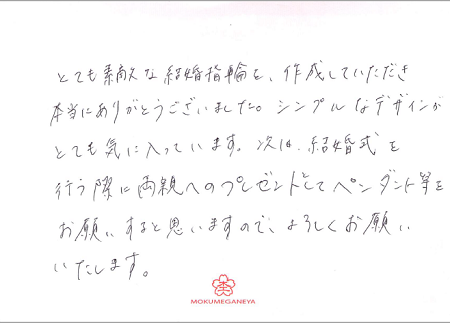 とても素敵な結婚指輪を、作成していただき
本当にありがとうございました。シンプルなデザインが
とても気に入っています。次は、結婚式を
行う際に両親へのプレゼントとしてペンダント等を
お願いすると思いますので、よろしくお願い
いたします。
MOKUMEGANEYA